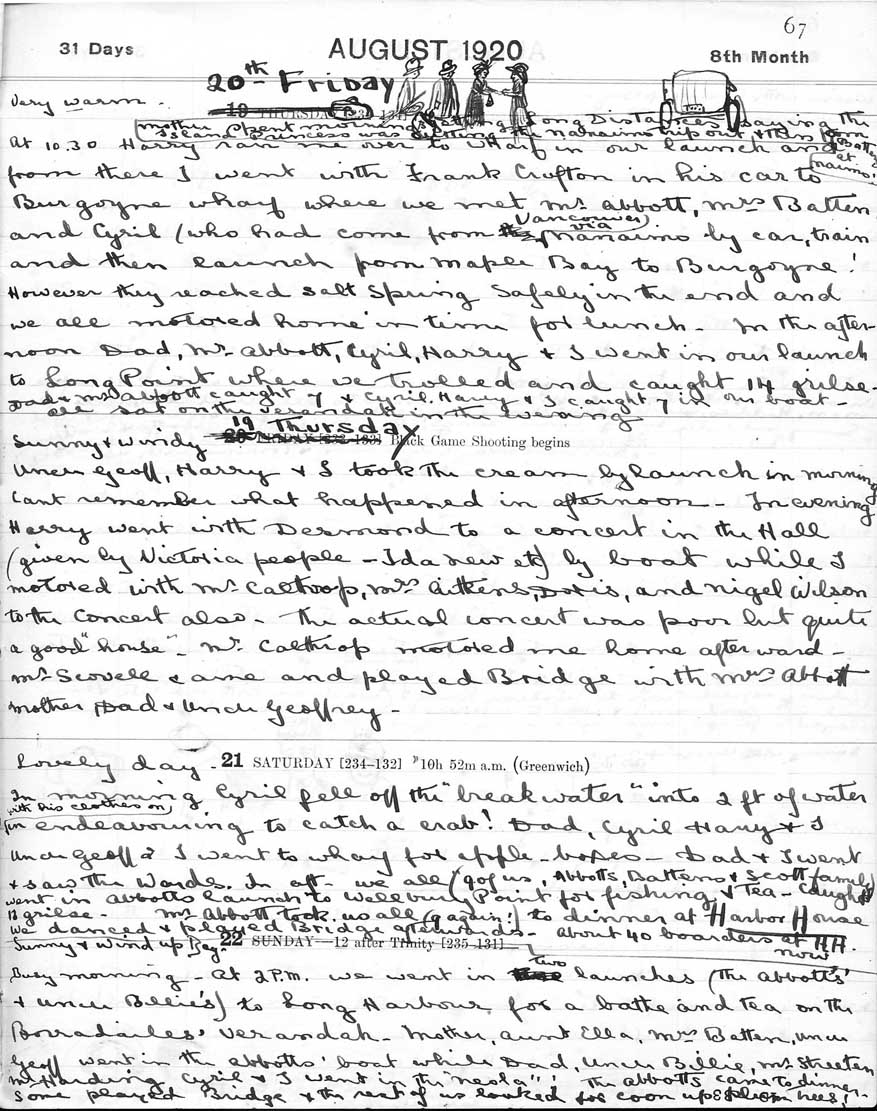 67
31 Days AUGUST 1920 8th Month
20th Friday
Very warm -
19 THURSDAY
mother spent morning getting Long Distances saying the
SS and Princess was getting the Nanaimo trip out & then from
At 10.30 Harry ran me over to wharf in our launch and
from there I went with Frank Crofton in his car to
Burgoyne wharf where we met Mr Abbott, Mrs Batten
Vancouver via
and Cyril (who had come from Nanaimo by car, train
and then launch from Maple Bay to Burgoyne!
However they reached Salt Spring safely in the end and
we all motored home in time for lunch - In the after-
noon Dad, Mr Abbott, Cyril, Harry & I went in our launch
to Long Point where we trolled and caught 14 grilse -
Dad & Mr Abbott caught 7 & Cyril, Harry & I caught 7 in our boat -
all sat on the verandah in the evening
19 Thursday
Sunny & Windy 20 FRIDAY [232-133] Black Game Shooting begins
Uncle Geoff, Harry & I took the cream by launch in morning
Cant remember what happened in afternoon - In evening
Harry went with Desmond to a concert in the Hall
(given by Victoria people - Ida new etc) by boat while I
motored with Mr Calthrop, Mrs Aitkens, Doris, and Nigel Wilson
to the concert also - The actual concert was poor but quite
a good "house" - Mr Calthrop motored me home afterward -
Mr Scovell came and played Bridge with Mrs Abbott
mother Dad & Uncle Geoffrey -
Lovely day - 21 SATURDAY [234-132] 10h 52m a.m. (Greenwich)
In morning Cyril fell off the "breakwater" into 2 ft of water
with his clothes on
in endeavouring to catch a crab! Dad, Cyril Harry & I
Uncle Geoff & I went to wharf for apple-boxes - Dad & I went
& saw the Wards. In aft- we all (9 of us, Abbotts, Battens & Scott family)
went in Abbotts launch to Wellbury Point for fishing & tea - Caught
13 grilse - Mr Abbott took us all (again!) to dinner at Harbor House
We danced & played Bridge afterwards - About 40 boarders at HH.
now
Sunny & Wind up Bay - 22 SUNDAY—12 after Trinity [235-131]
Busy morning - At 2 P.M. we went in two launches (the Abbotts'
& Uncle Billie's) to Long Harbour for a bathe and tea on the
Borradailes' verandah - Mother, Aunt Ella, Mrs Batten, Uncle
Geoff went in the Abbotts' boat while Dad, Uncle Billie, Mr Streeten
Mr Harding Cyril & I went in the "neola"! The Abbotts came to dinner
Some played Bridge & the rest of us looked for coon up plum trees!